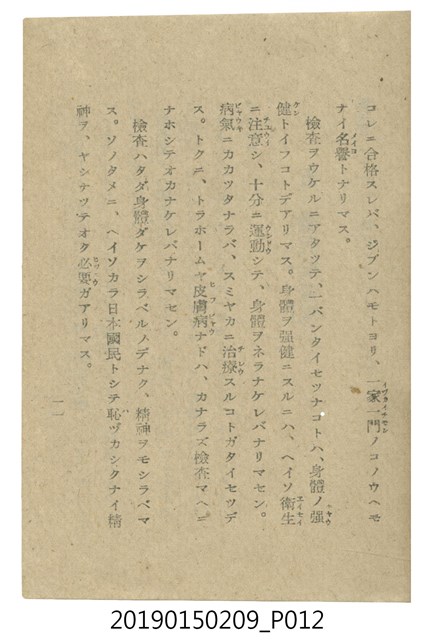 コレニ合格スレバ、ジブンハモトヨリ、一家一門ノコノウヘモ
ナイ名譽トナリマス。
檢査ヲウケルニアタツテ、一バンタイセツナコトハ、身體ノ强
健トイフコトデアリマス。身體ヲ强健ニスルニハ、ヘイソ衞生
ニ注意シ、十分ニ運動シテ、身體ヲネラナケレバナリマセン。
病氣ニカカツタナラバ、スミヤカニ治療スルコトガタイセツデ
ス。トクニ、トラホームヤ皮膚病ナドハ、カナラズ檢査マヘニ
ナホシテオカナケレバナリマセン。
檢査ハタダ身體ダケヲシラベルノデナク、精神ヲモシラベマ
ス。ソノタメニ、ヘイソカラ日本國民トシテ恥ヅカシクナイ精
神ヲ、ヤシナツテオク必要ガアリマス。
一一
20190150209_P012